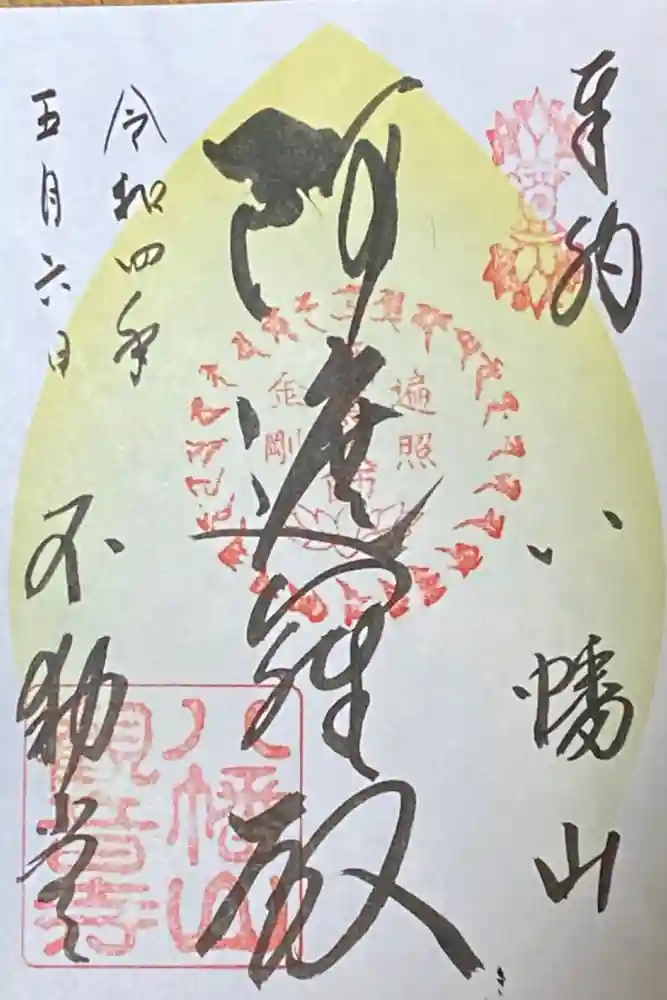 奉納
八幡山
阿遮羅殿
令和四年
五月六日
不動堂
遍照
金剛
八幡山
観音寺